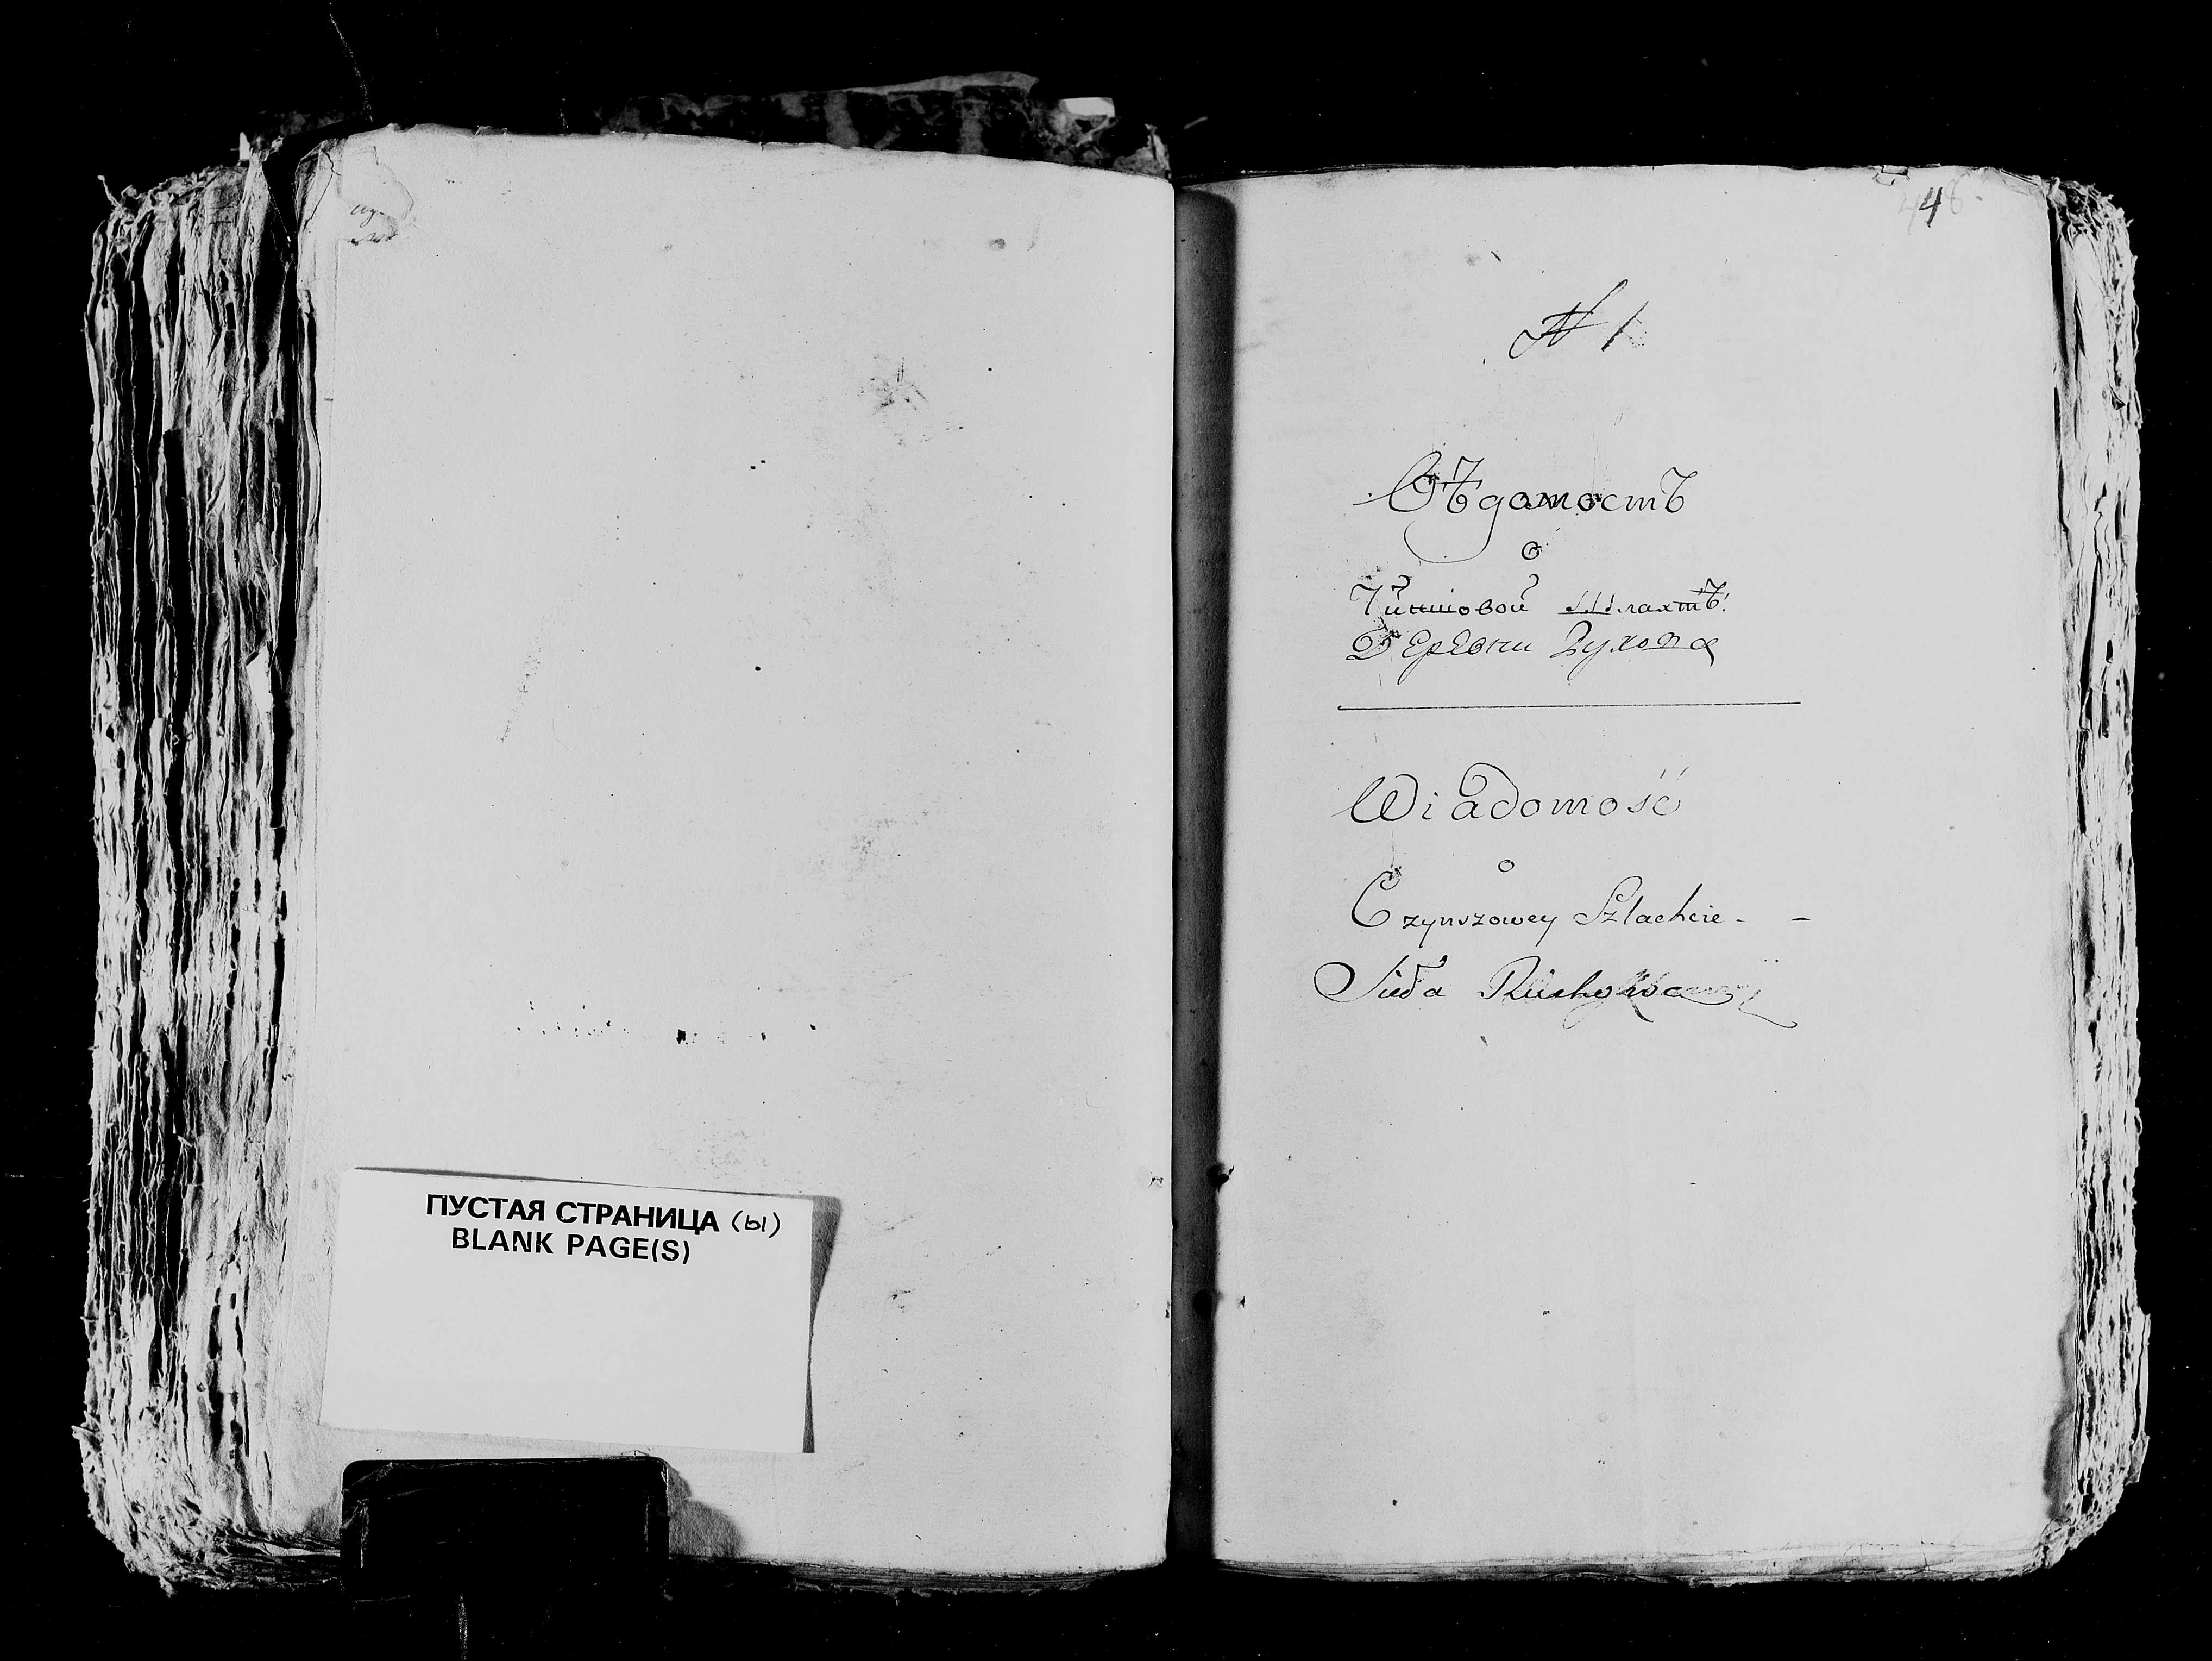 ПУСТАЯ СТРАНИЦА (ы)
BLANK PAGE(S)
44
N 1
Вѣдомость
о
Чиншовой Шляхтѣ.
Деревни
Wiadomość
o
Czynszowey Szlachcie - -